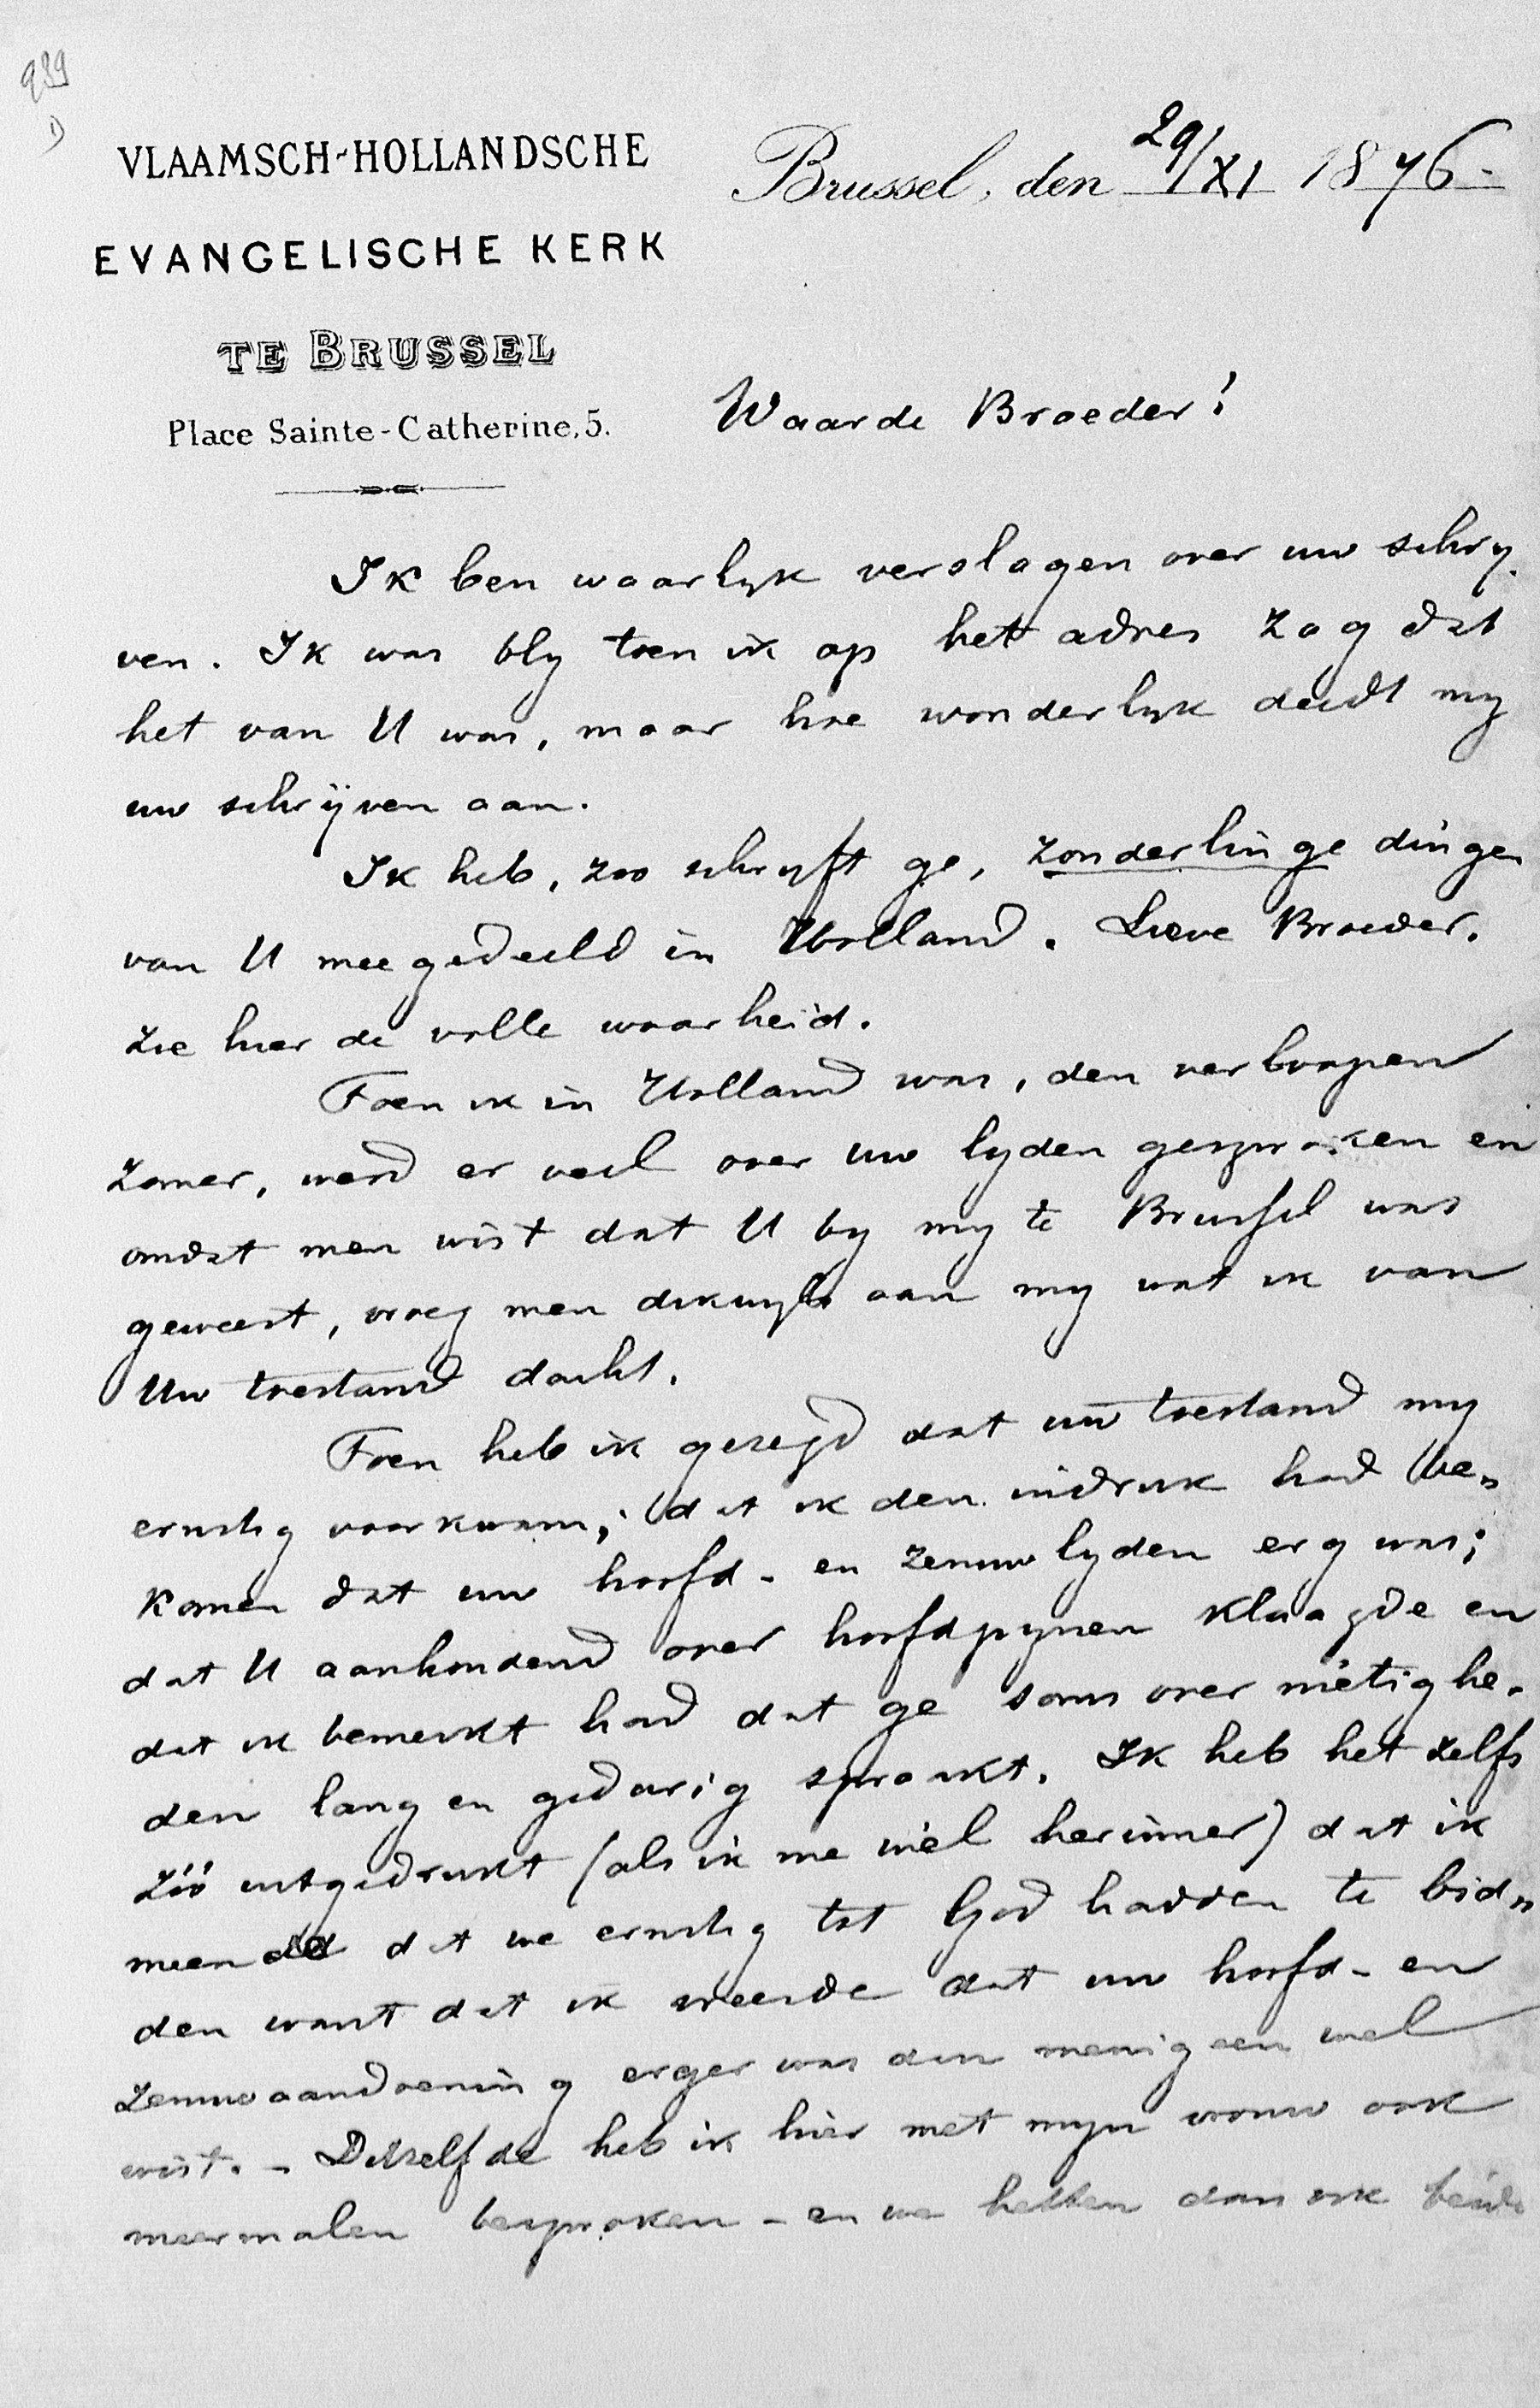 939
1)
VLAAMSCH-HOLLANDSCHE
EVANGELISCHE KERK
TE BRUSSEL
Place Sainte-Catherine, 5.
Brussel, den 29/XI 1876.
Waarde Broeder!
Ik ben waarlyk verslagen over uw schry-
ven. Ik was bly toen ik op het adres zag dat
het van U was, maar hoe wonderlyk deedt my
uw schrijven aan.
Ik heb, zoo schryft ge, zonderlinge dingen
van U meegedeeld in Holland. Lieve Broeder.
zie hier de volle waarheid.
Toen ik in Holland was, den verloopen
zomer, werd er veel over uw lyden gesproken en
omdat men wist dat U by my te Brussel was
geweest, vroeg men dikwyls aan my wat ik van
Uw toestand dacht.
Toen heb ik gezegd dat uw toestand my
ernstig voorkwam; dat ik den indruk had be„
komen dat uw hoofd- en zenuwlyden erg was;
dat U aanhoudend over hoofdpynen klaagde en
dat ik bemerkt had dat ge soms over nietighe-
den lang en gedurig spraakt. Ik heb het zelfs
zóó uitgedrukt (als ik me wel herinner) dat ik
meende dat we ernstig tot God hadden te bid„
den want dat ik vreesde dat uw hoofd- en
zenuwaandoening erger was dan menigeen wel
wist. - Ditzelfde heb ik hier met myn vrouw ook
meermalen besproken - en we hebben dan ook beide